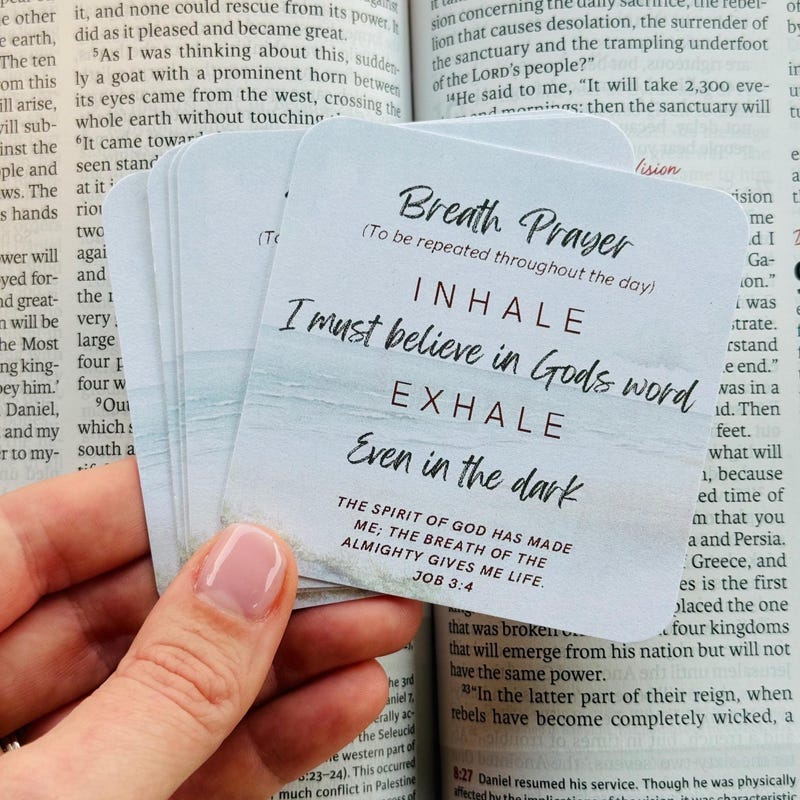 it, and none could rescue from its power. It
did as it pleased and became great.
5As I was thinking about this, sudden-
ly a goat with a prominent horn between
its eyes came from the west, crossing the
whole earth without touching
6It came toward
seen stand
at it
two
agai
and
the
very
large
four
four w
9Out
which
south a
e other
earth,
The ten
om this
ill arise,
will sub-
inst the
ple and
ws. The
s hands
wer will
yed for-
nd great-
n will be
he Most
ng king-
bey him.'
Daniel,
and my
r to my-
sion concerning the daily sacrifice, the rebel-
lion that causes desolation, the surrender of
the sanctuary and the trampling underfoot
of the LORD's people?"
14He said to me, "It will take 2,300 eve-
and mornings; then the sanctuary will
Vision
Breath Prayer
(To be repeated throughout the day)
INHALE
I must believe in Gods word
EXHALE
Even in the dark
THE SPIRIT OF GOD HAS MADE
ME; THE BREATH OF THE
ALMIGHTY GIVES ME LIFE.
JOB 3:4
(To
vision
me
d I
Ga-
on."
was
trate.
rstand
e end."
was in a
d. Then
feet.
what will
, because
ed time of
m that you
a and Persia.
Greece, and
es is the first
placed the one
that was broken off four kingdoms
that will emerge from his nation but will not
have the same power.
23"In the latter part of their reign, when
rebels have become completely wicked, a
he 3rd
aniel 7,
erally ac-
the Seleucid
e western part of
8:23–24). This occurred
much conflict in Palestine
8:27 Daniel resumed his service. Though he was physically
affected by the implications of the vision, it was characteristic